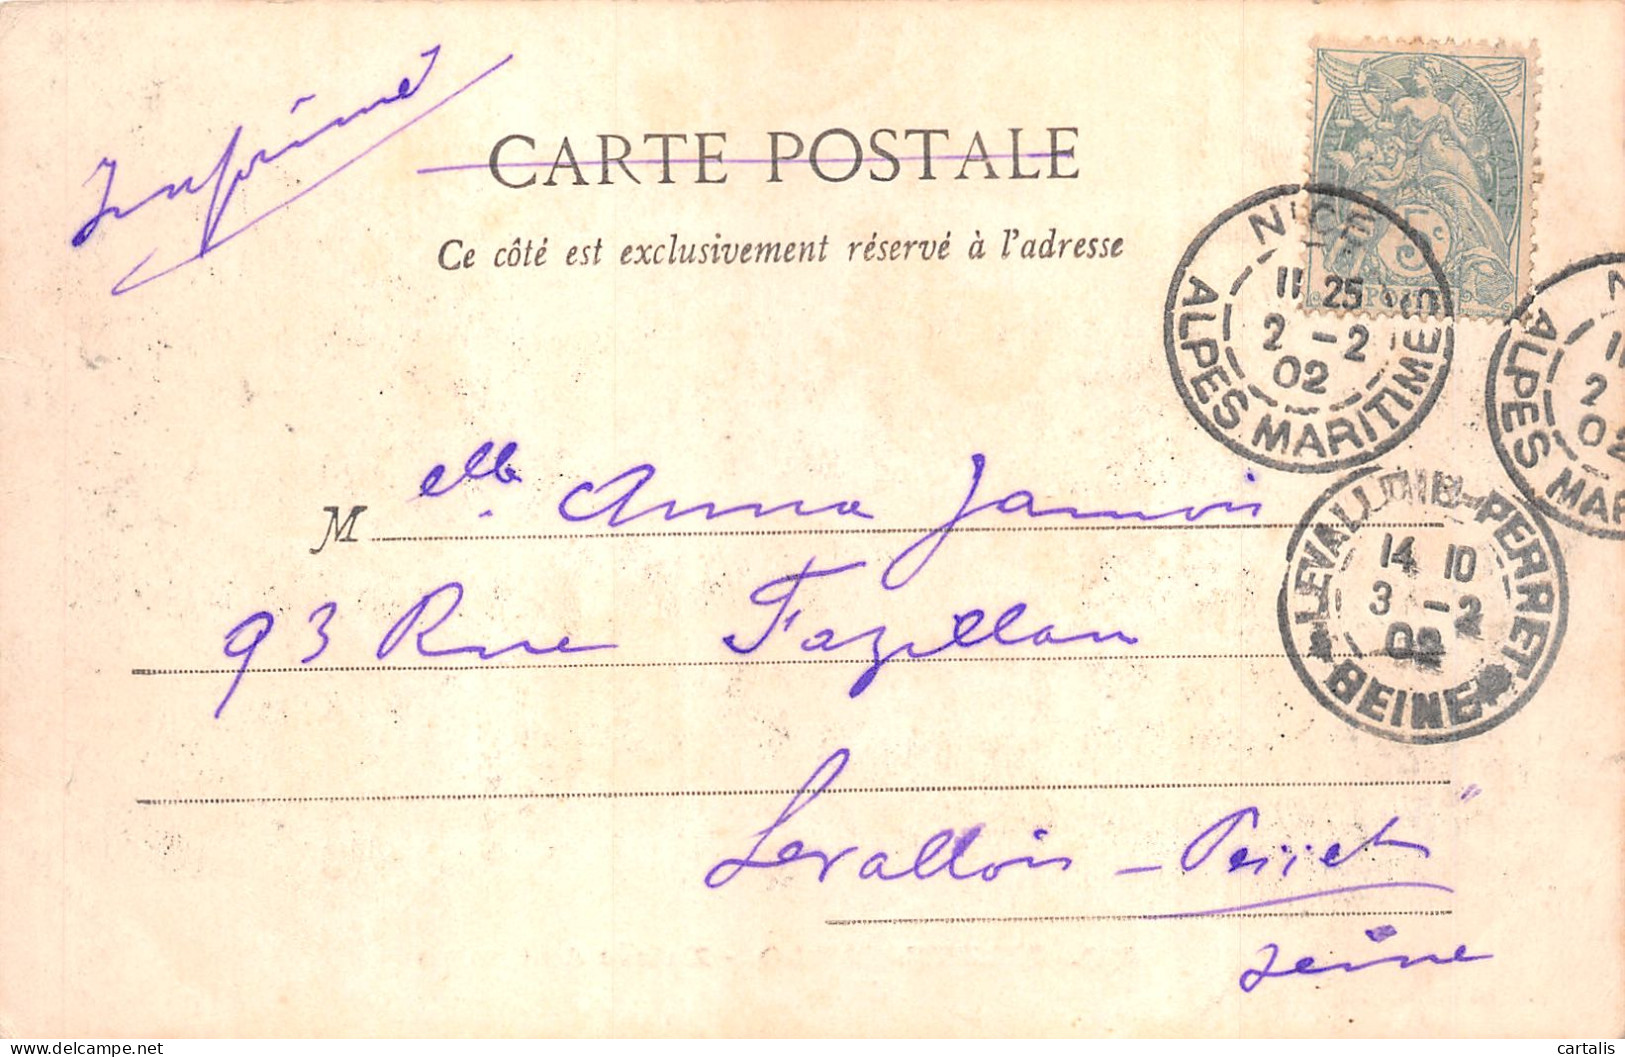 Imprimé
CARTE POSTALE
Ce côté est exclusivement réservé à l'adresse
5c
POSTES
NICE
11 25
2 -2
02
ALPES MARITIMES
N
11
2
02
ALPES MAR
LEVALLOIS-PERRET
14 10
3 -2
02
SEINE
Melle Anna Jamois
93 Rue Fazillau
Levallois-Perret
Seine
cartalis